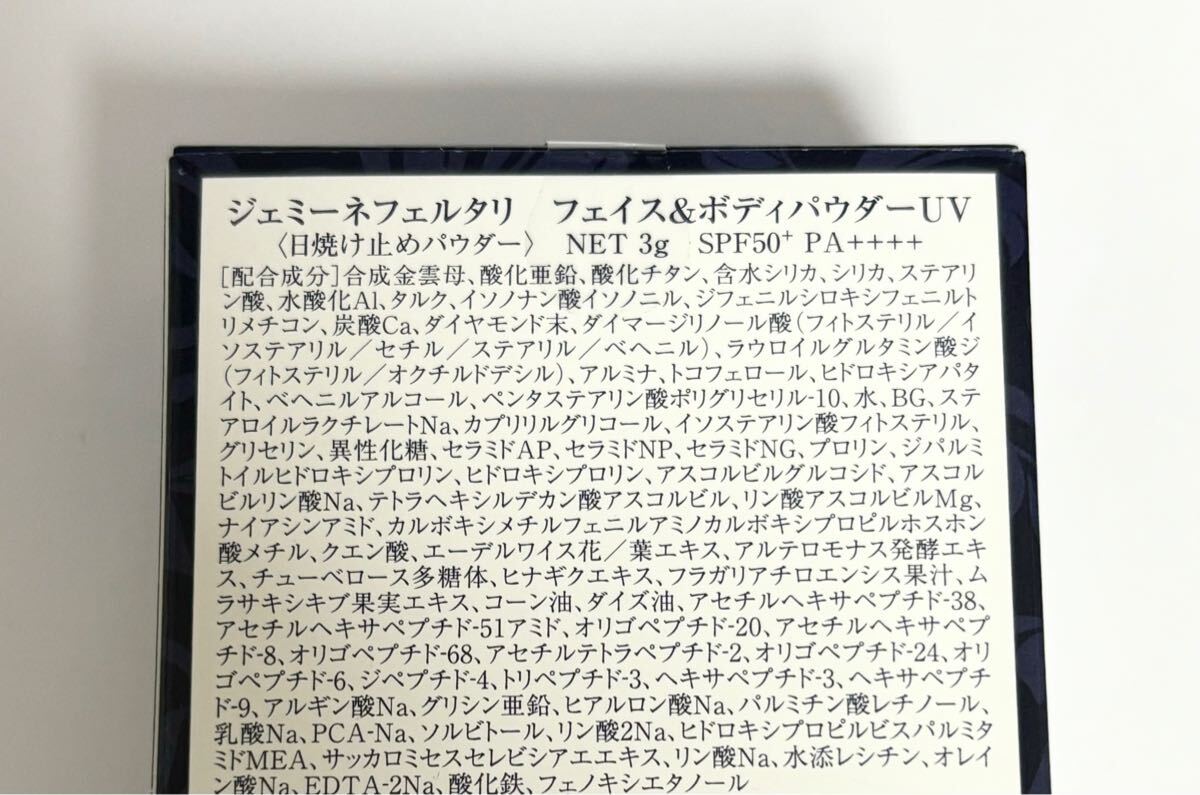 ジェミーネフェルタリ　フェイス&ボディパウダーUV
〈日焼け止めパウダー〉　NET 3g　SPF50⁺ PA++++
[配合成分]合成金雲母、酸化亜鉛、酸化チタン、含水シリカ、シリカ、ステアリ
ン酸、水酸化Al、タルク、イソノナン酸イソノニル、ジフェニルシロキシフェニルト
リメチコン、炭酸Ca、ダイヤモンド末、ダイマージリノール酸(フィトステリル／イ
ソステアリル／セチル／ステアリル／ベヘニル)、ラウロイルグルタミン酸ジ
(フィトステリル／オクチルドデシル)、アルミナ、トコフェロール、ヒドロキシアパタ
イト、ベヘニルアルコール、ペンタステアリン酸ポリグリセリル-10、水、BG、ステ
アロイルラクチレートNa、カプリリルグリコール、イソステアリン酸フィトステリル、
グリセリン、異性化糖、セラミドAP、セラミドNP、セラミドNG、プロリン、ジパルミ
トイルヒドロキシプロリン、ヒドロキシプロリン、アスコルビルグルコシド、アスコル
ビルリン酸Na、テトラヘキシルデカン酸アスコルビル、リン酸アスコルビルMg、
ナイアシンアミド、カルボキシメチルフェニルアミノカルボキシプロピルホスホン
酸メチル、クエン酸、エーデルワイス花／葉エキス、アルテロモナス発酵エキ
ス、チューベロース多糖体、ヒナギクエキス、フラガリアチロエンシス果汁、ム
ラサキシキブ果実エキス、コーン油、ダイズ油、アセチルヘキサペプチド-38、
アセチルヘキサペプチド-51アミド、オリゴペプチド-20、アセチルヘキサペプ
チド-8、オリゴペプチド-68、アセチルテトラペプチド-2、オリゴペプチド-24、オリ
ゴペプチド-6、ジペプチド-4、トリペプチド-3、ヘキサペプチド-3、ヘキサペプチ
ド-9、アルギン酸Na、グリシン亜鉛、ヒアルロン酸Na、パルミチン酸レチノール、
乳酸Na、PCA-Na、ソルビトール、リン酸2Na、ヒドロキシプロピルビスパルミタ
ミドMEA、サッカロミセスセレビシアエエキス、リン酸Na、水添レシチン、オレイ
ン酸Na、EDTA-2Na、酸化鉄、フェノキシエタノール